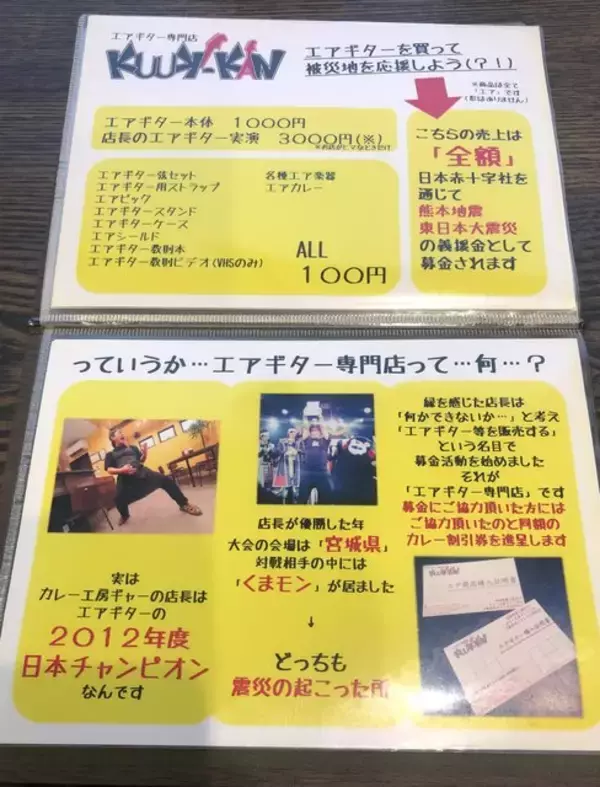 エアギター専門店
KUUKI-KAN
エアギターを買って
被災地を応援しよう(?!)
※商品は全て
「エア」です
(形はありません)
エアギター本体 1000円
店長のエアギター実演 3000円(※)
エアギター弦セット
エアギター用ストラップ
エアピック
エアギタースタンド
エアギターケース
エアシールド
エアギター教則本
エアギター教則ビデオ(VHSのみ)
各種エア楽器
エアカレー
ALL
100円
こちらの売上は
「全額」
日本赤十字社を
通じて
熊本地震
東日本大震災
の義援金として
募金されます
っていうか…エアギター専門店って…何…?
実は
カレー工房ギャーの店長は
エアギターの
2012年度
日本チャンピオン
なんです
店長が優勝した年
大会の会場は「宮城県」
対戦相手の中には
「くまモン」が居ました
↓
どっちも
震災の起こった所
縁を感じた店長は
「何かできないか…」と考え
「エアギター等を販売する」
という名目で
募金活動を始めました
それが
「エアギター専門店」です
募金にご協力頂いた方には
ご協力頂いたのと同額の
カレー割引券を進呈します